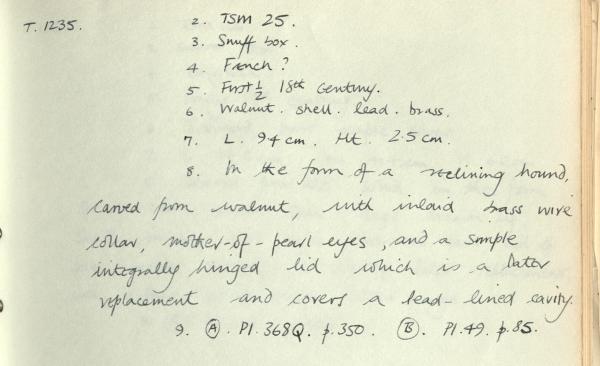 T. 1235.
2. TSM 25.
3. Snuff box.
4. French?
5. First ½ 18th Century.
6. Walnut. shell. lead. brass.
7. L. 9.4 cm. Ht. 2.5 cm.
8. In the form of a reclining hound,
carved from walnut, with inlaid brass wire
collar, mother-of-pearl eyes, and a simple
integrally hinged lid which is a later
replacement and covers a lead-lined cavity.
9. Ⓐ. Pl. 368Q. p.350. Ⓑ. Pl. 49. p. 85.